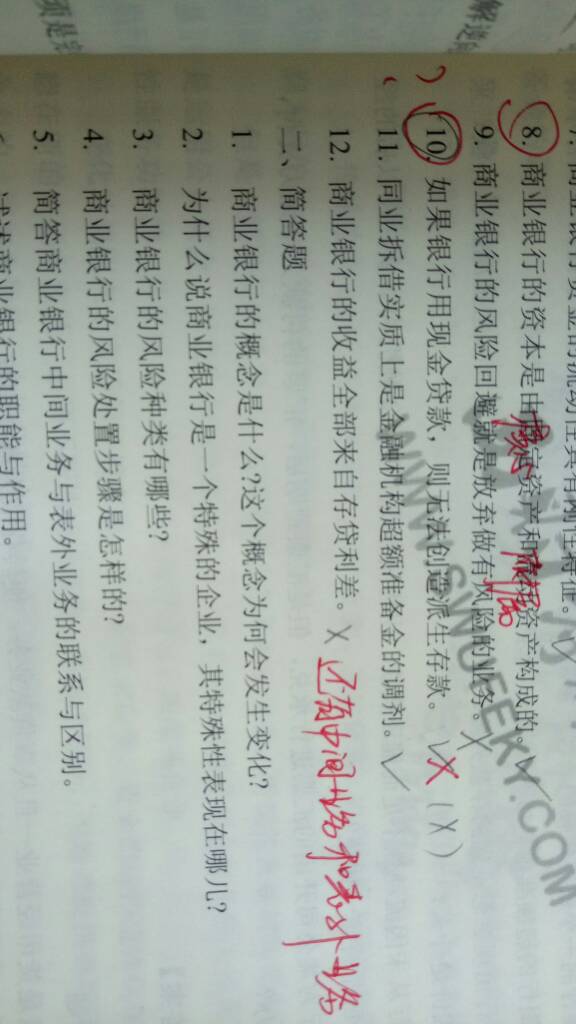 7. 商业银行资金的流动性具有刚性特征。✓
8. 商业银行的资本是由固定资产和流动资产构成的。✓
核心 附属
9. 商业银行的风险回避就是放弃做有风险的业务。X
10. 如果银行用现金贷款，则无法创造派生存款。✓ X (X)
11. 同业拆借实质上是金融机构超额准备金的调剂。✓
12. 商业银行的收益全部来自存贷利差。X 还有中间业务和表外业务
二、简答题
1. 商业银行的概念是什么?这个概念为何会发生变化?
2. 为什么说商业银行是一个特殊的企业，其特殊性表现在哪儿?
3. 商业银行的风险种类有哪些?
4. 商业银行的风险处置步骤是怎样的?
5. 简答商业银行中间业务与表外业务的联系与区别。
试述商业银行的职能与作用。